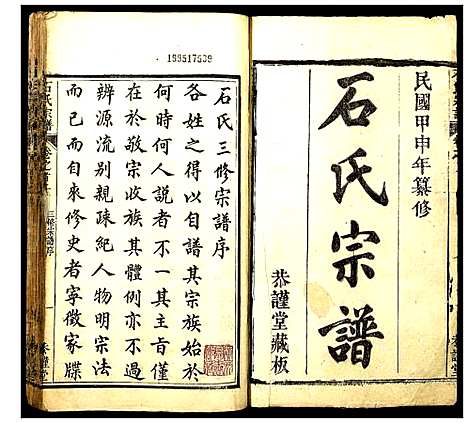 民國甲申年纂修
石氏宗譜
恭謹堂藏板
188517539
石氏三修宗譜序
各姓之得以自譜其宗族始於
何時何人說者不一其主旨僅
在於敬宗收族其體例亦不過
辨源流別親疎紀人物明宗法
而已而自來修史者寧徵家牒
石氏宗譜
三修宗譜序
恭謹堂